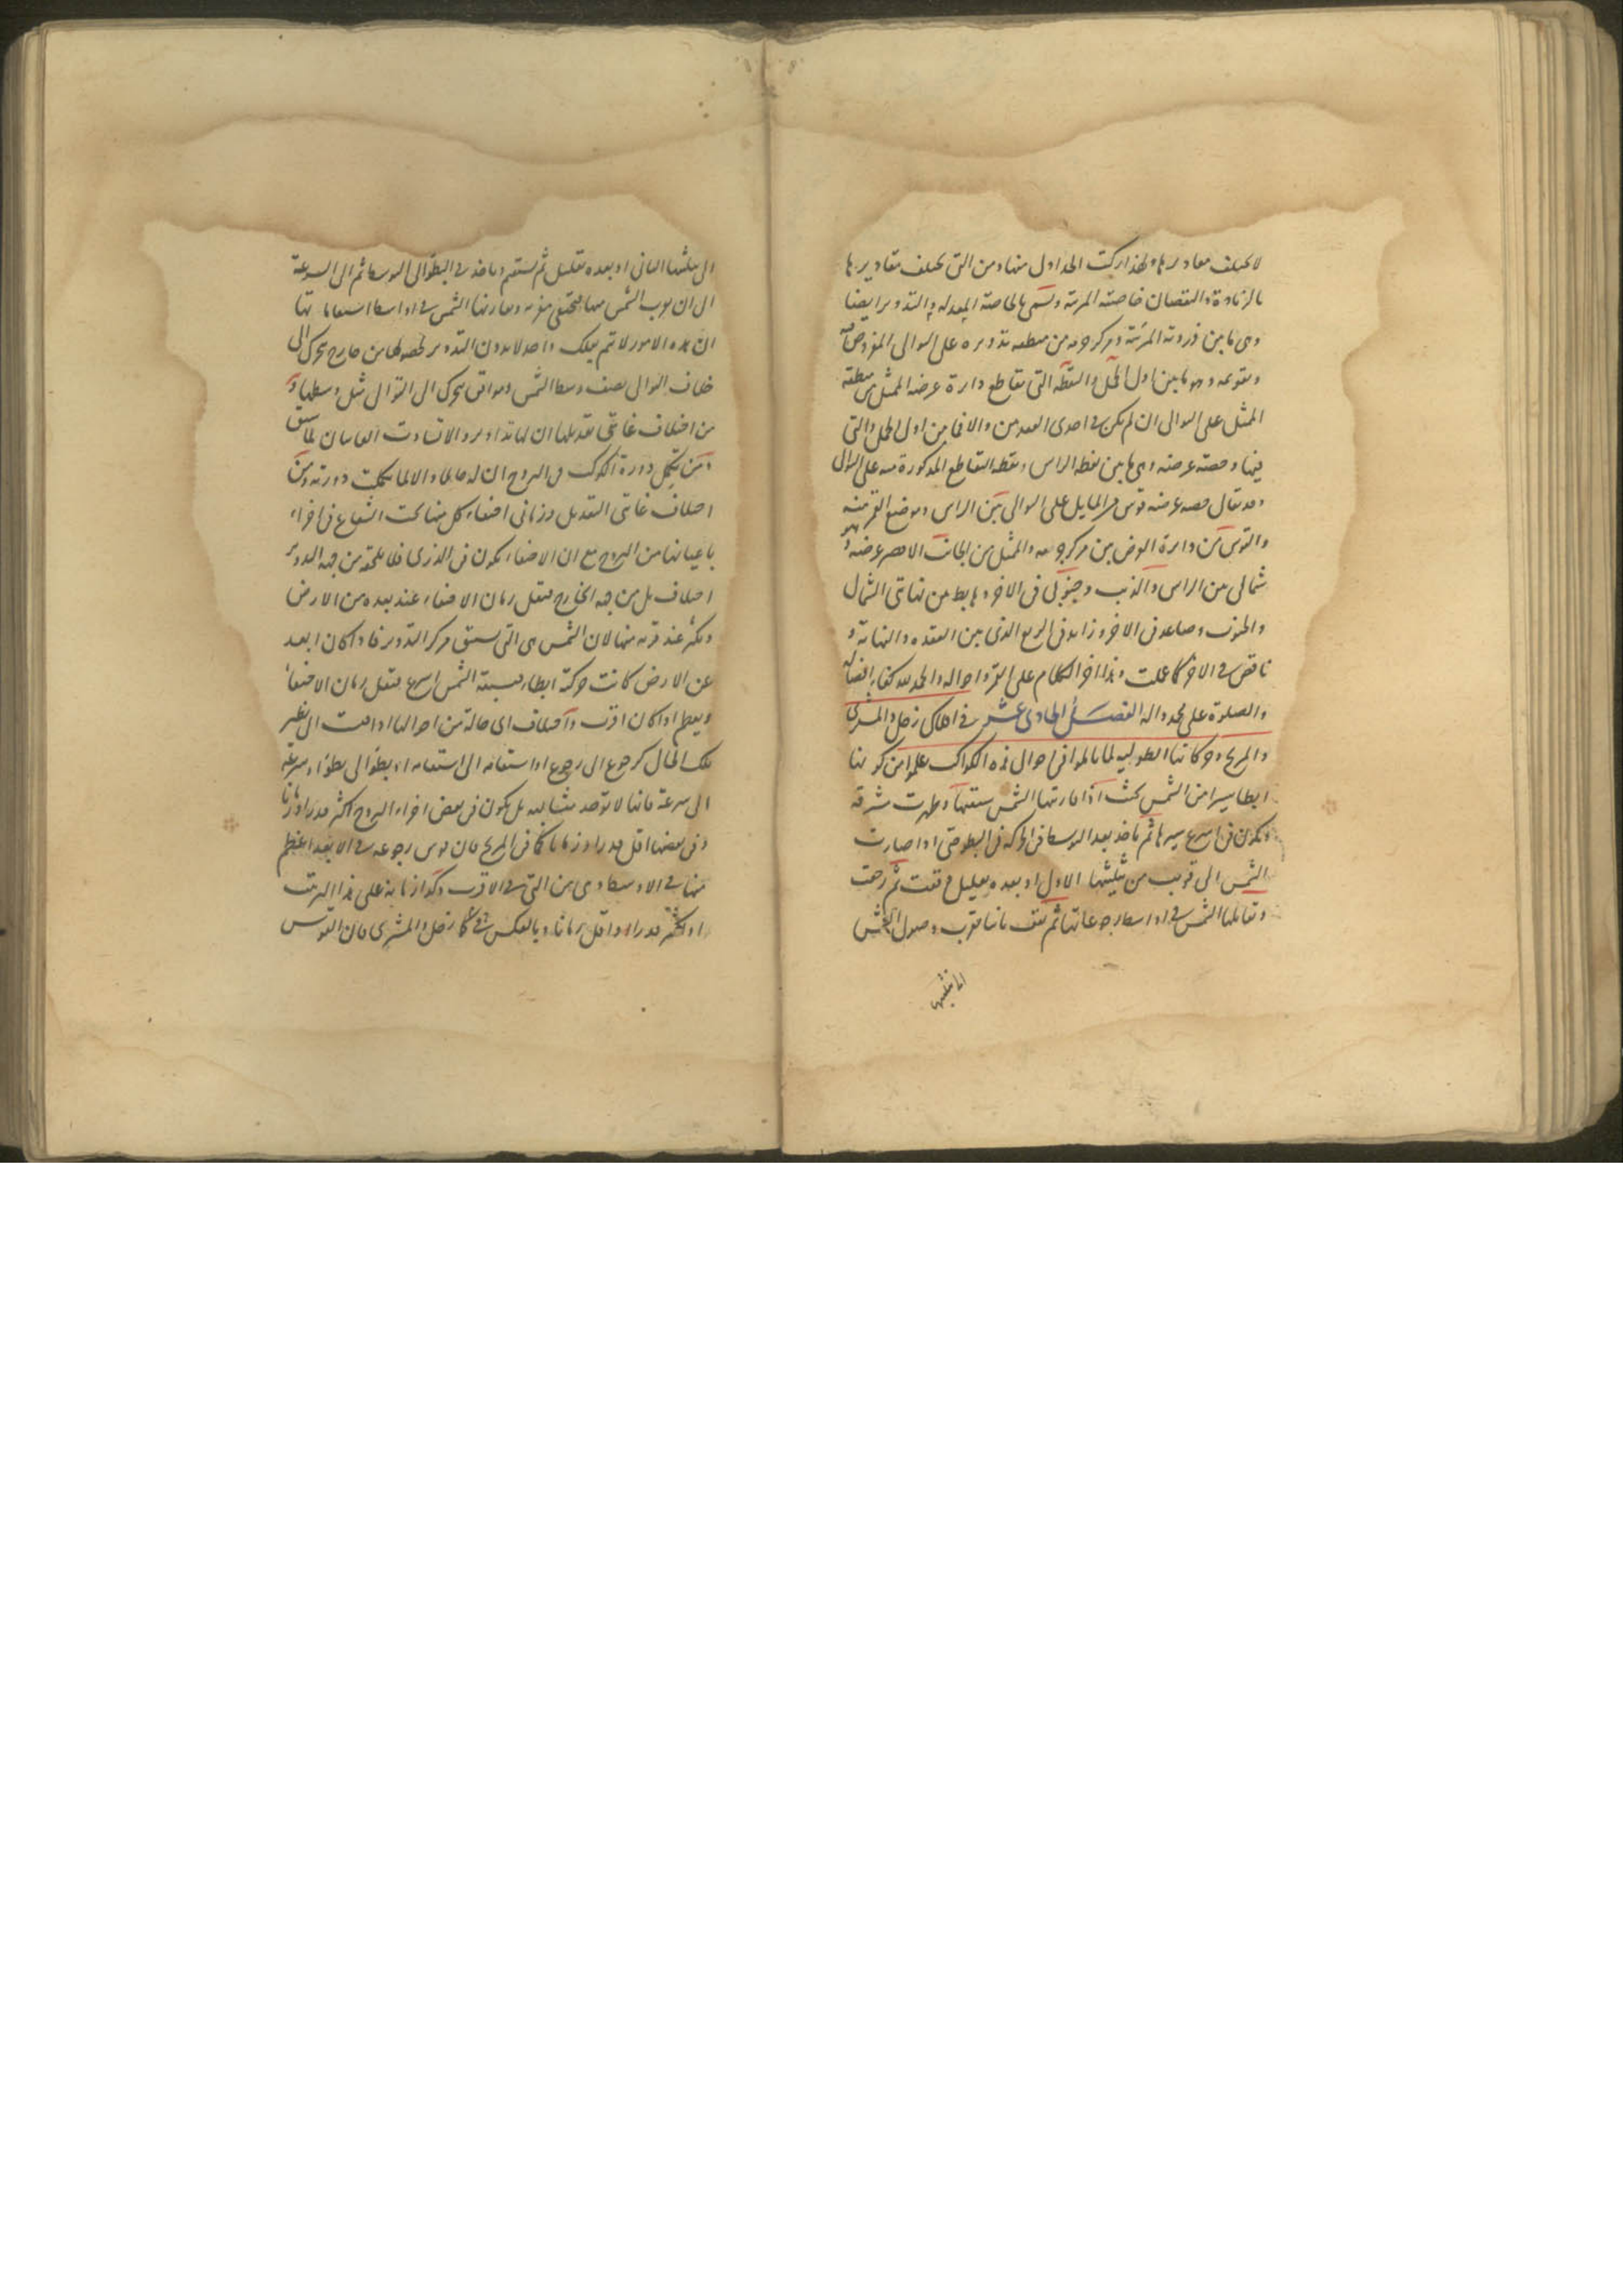 لا يختلف مقاديرها ولهذا ركبت الجداول منها ومن التي يختلف مقاديرها
بالزيادة والنقصان خاصته المرئية وتسمى بالخاصة المعدلة والتدوير ايضا
وهى ما بين ذروته المرئية ومركز جرمه من منطقة تدويره على التوالى المفروض
وتقويمه وهو ما بين اول الحمل والنقطة التى تقاطع دايرة عرضه الممثل من منطقة
الممثل على التوالى ان لم يكن فى احدى العقدتين والا فما بين اول الحمل والتى
فيها وحصة عرضه وهى ما بين نقطة الراس ونقطة التقاطع المذكورة منه على التوالى
وقد يقال حصة عرضه قوس من المايل على التوالى بين الراس وموضع القمر منه
والقوس من دايرة العرض بين مركز جرمه والممثل من الجانب الاقصر عرضه وهو
شمالى من الراس والذنب وجنوبى فى الاخر وهابط من نهايتى الشمال
والجنوب وصاعد فى الاخر وزايد فى الربع الذى بين العقدة والنهاية و
ناقص فى الاخر كما علمت وهذا اخر الكلام على القمر واحواله والحمد لله كفاء افضاله
والصلوة على محمد واله الفصل الحادى عشر فى افلاك زحل والمشترى
والمريخ وحركاتها الطولية لما تاملوا فى احوال هذه الكواكب علموا من كونها
ابطا سيرا من الشمس بحيث اذا قارنتها الشمس سبقتها وظهرت شرقية
وتكون فى اسرع سيرها ثم ياخذ بعد الوسط فى الحركة فى البطؤ حتى اذا صارت
الشمس الى قريب من تثليثها الاول او بعده بقليل وقفت ثم رجعت
وتقابلها الشمس فى اواسط رجوعاتها ثم تقف ثانيا بقرب وصول الشمس
الى تثليثها
الى تثليثها الثانى او بعده بقليل ثم تستقيم وياخذ فى البطؤ الى الوسط ثم الى السرعة
الى ان يقرب الشمس منها فتختفى مغربة وتقارنها الشمس فى اواسط استقاماتها
ان هذه الامور لا تتم بفلك واحد لا بدون التدوير لحصولها من خارج يتحرك الى
خلاف التوالى بضعف وسط الشمس وموافق يتحرك الى التوالى مثل وسطها و
من اختلاف غايتى تعديلها ان لها تداوير والا تساوت الغايتان لما سبق
ومن تكمل دورة الكوكب فى البروج ان له حاملا والا لما تكملت دورته ومن
اختلاف غايتى التعديل وزمانى اختفاء كل منها تحت الشعاع فى اجزاء
باعيانها من البروج مع ان الاختفاء يكون فى الذرى فلا يلحقه من جهة التدوير
اختلاف بل من جهة الخارج فيقل زمان الاختفاء عند بعده من الارض
ويكثر عند قربه منها لان الشمس هى التى تسبق مركز التدوير فاذا كان ابعد
عن الارض كانت حركته ابطا فسبقة الشمس اسرع فيقل زمان الاختفاء
ويعظم اذا كان اقرب واختلاف اى حالة من احوالها اذا قيست الى نظير
تلك الحال كرجوع الى رجوع او استقامة الى استقامة او بطؤ الى بطؤ او سرعة
الى سرعة فانها لا توجد متشابهة بل يكون فى بعض اجزاء البروج اكثر قدرا وزمانا
وفى بعضها اقل قدرا وزمانا كما فى المريخ فان قوس رجوعه فى الابعد اعظم
منها فى الاوسط وهى من التى فى الاقرب وكذا ازمانه على هذا الترتيب
او اكثر قدرا واقل زمانا وبالعكس كما فى زحل والمشترى فان القوس